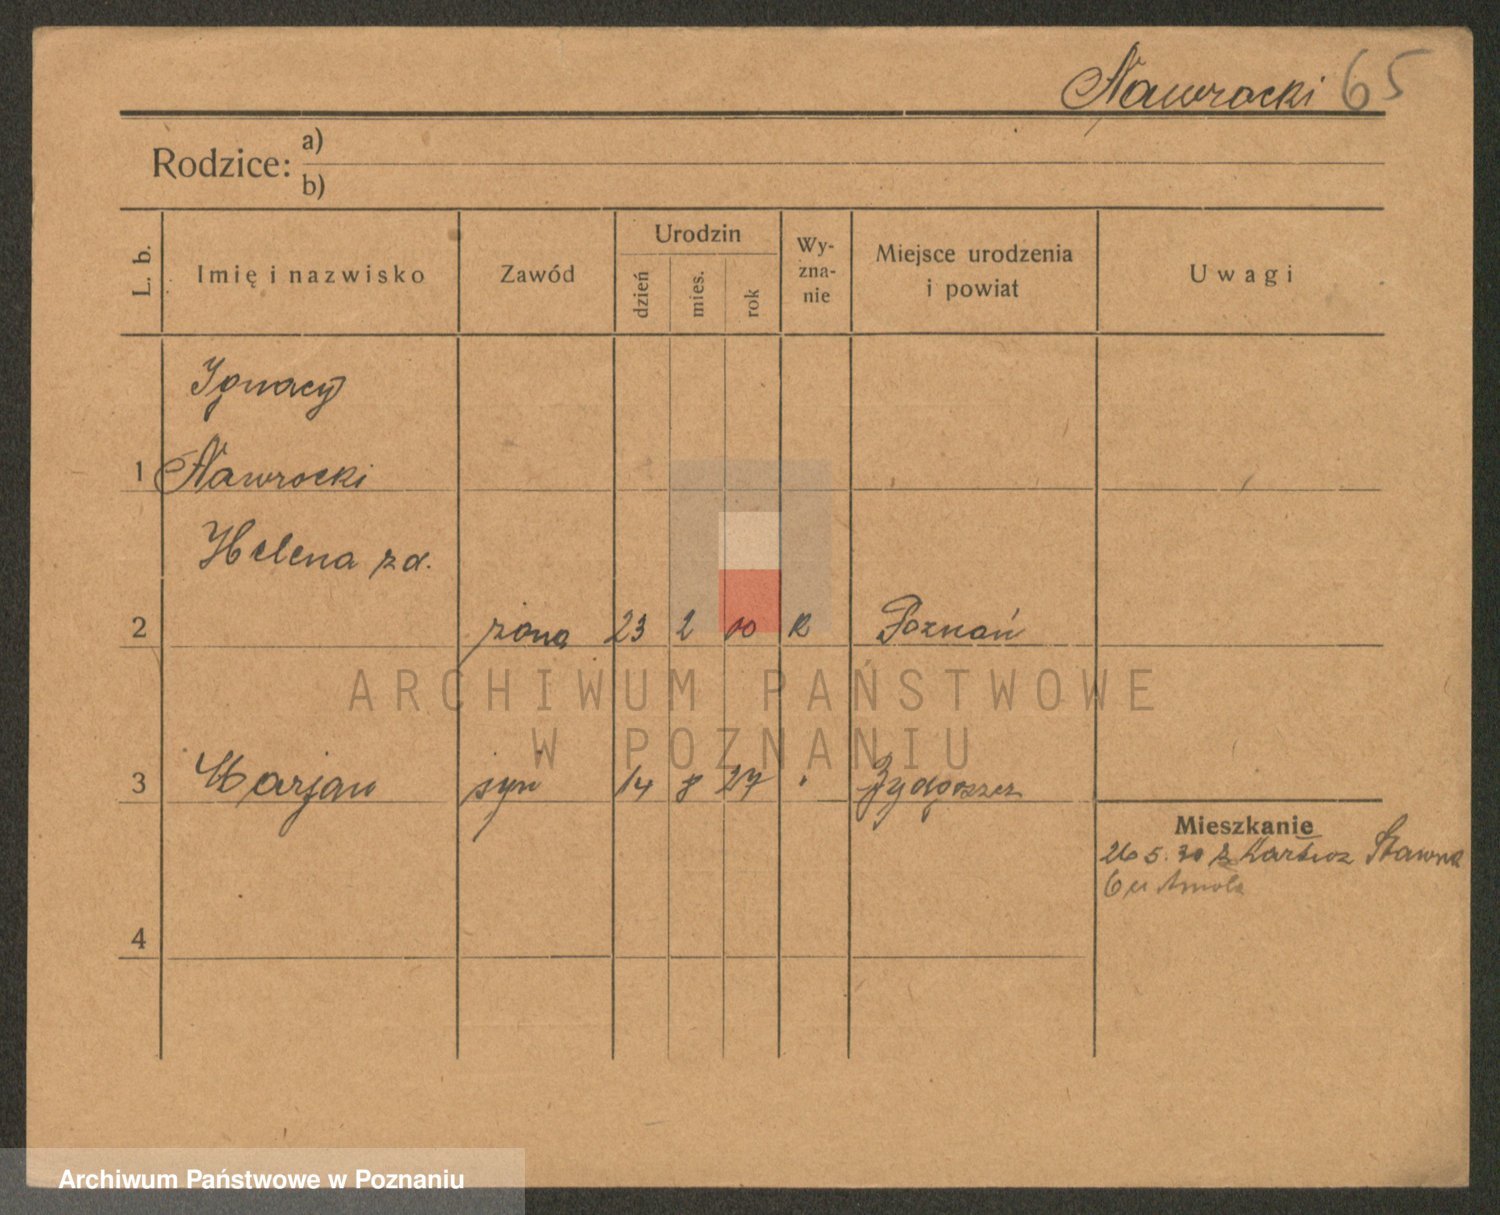 Nawrocki 65
Rodzice: a)
b)
L. b.
Imię i nazwisko
Zawód
Urodzin
dzień
mies.
rok
Wy-
zna-
nie
Miejsce urodzenia
i powiat
Uwagi
Ignacy
1 Nawrocki
Helena zd.
2 żona 23 2 00 R Poznań
ARCHIWUM PAŃSTWOWE
W POZNANIU
3 Marjan syn 14 8 27 " Bydgoszcz
Mieszkanie
26 5. 30 z Kartuz Stawna
6 u
4
Archiwum Państwowe w Poznaniu